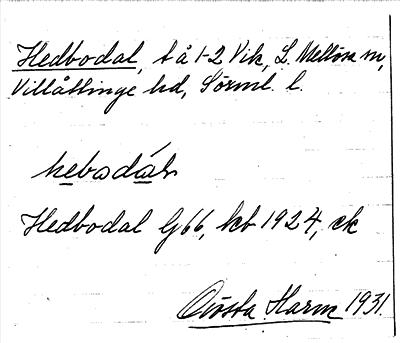 Hedbodal, t å 1-2 Vik, L. Mellösa sn,
Villåttinge hd, Sörml. l.
hebodáɫ
Hedbodal G66, kb 1924, ek
Gösta Harm 1931.